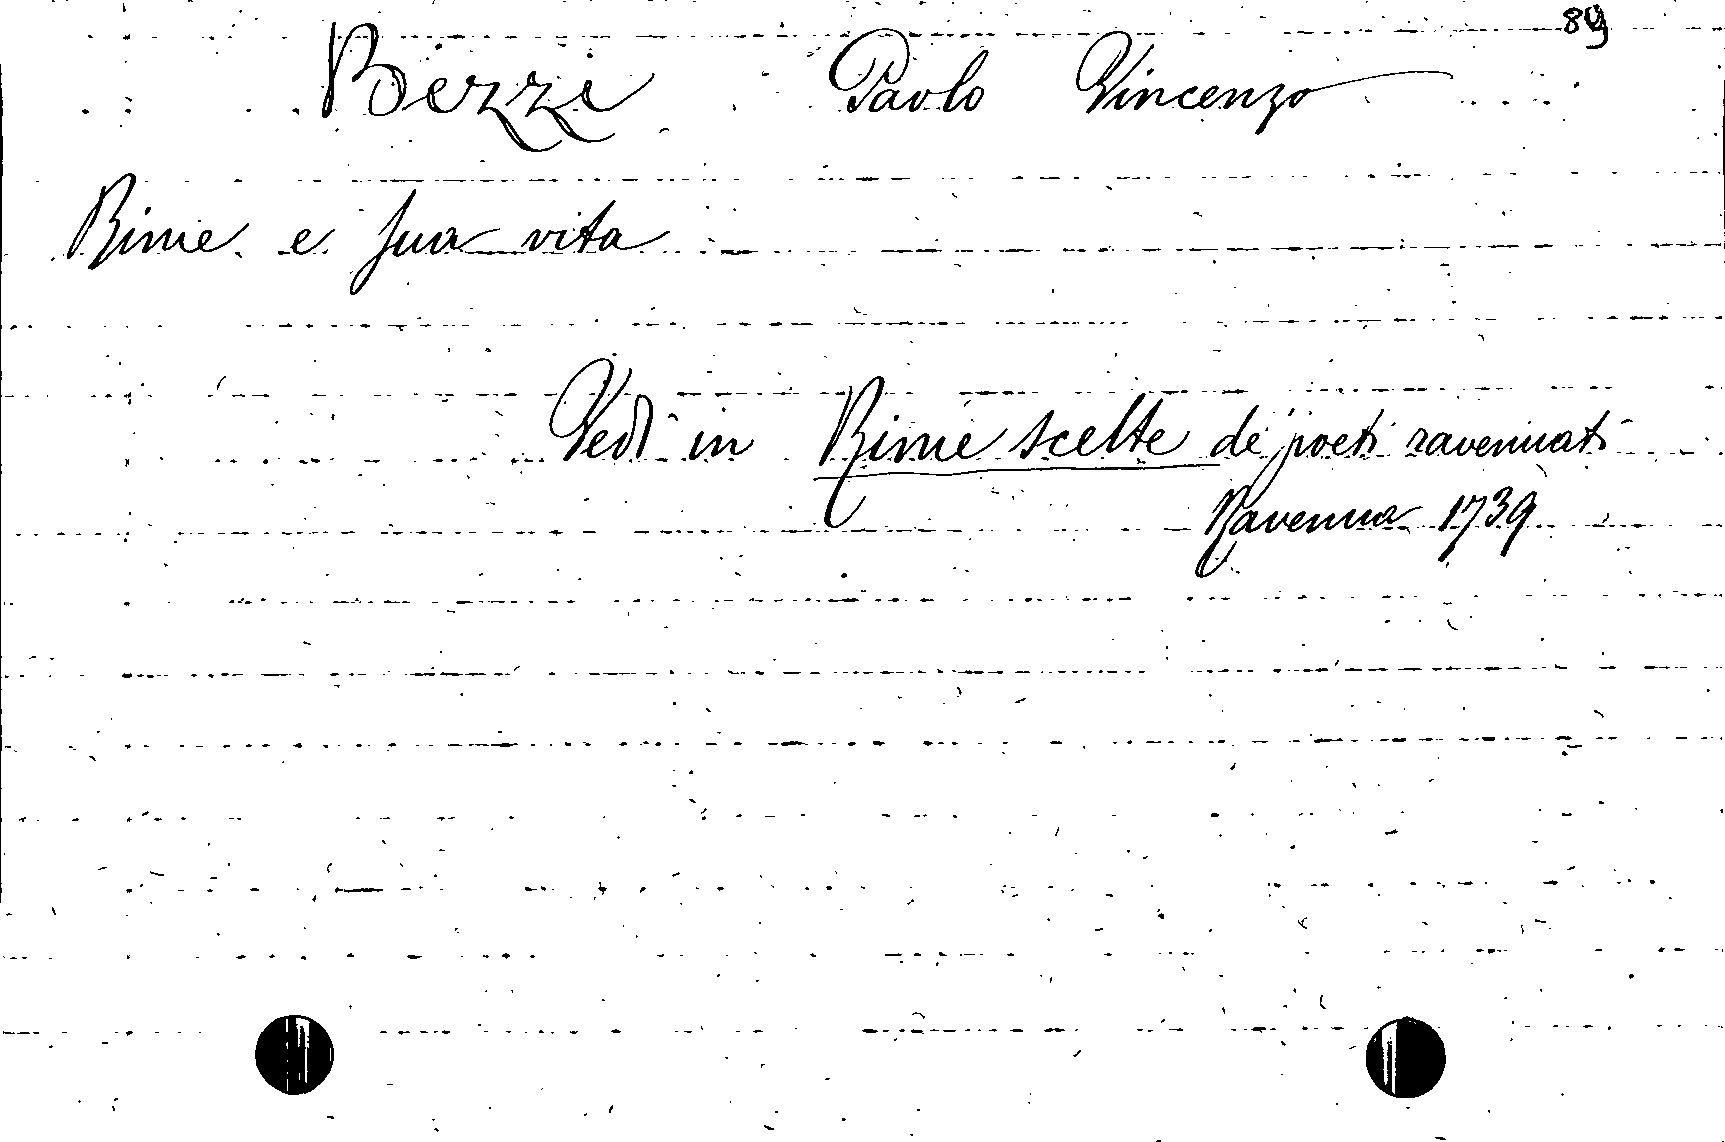 89
Bezzi Paolo Vincenzo
Rime e sua vita
Vedi in Rime scelte de' poeti ravennati
Ravenna 1739